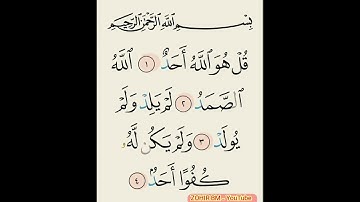 بِسْمِ ٱللَّهِ ٱلرَّحْمَٰنِ ٱلرَّحِيمِ
قُلْ هُوَ ٱللَّهُ أَحَدٌ ١ ٱللَّهُ
ٱلصَّمَدُ ٢ لَمْ يَلِدْ وَلَمْ
يُولَدْ ٣ وَلَمْ يَكُن لَّهُۥ
كُفُوًا أَحَدٌۢ ٤
ZOHIR BM - YouTube